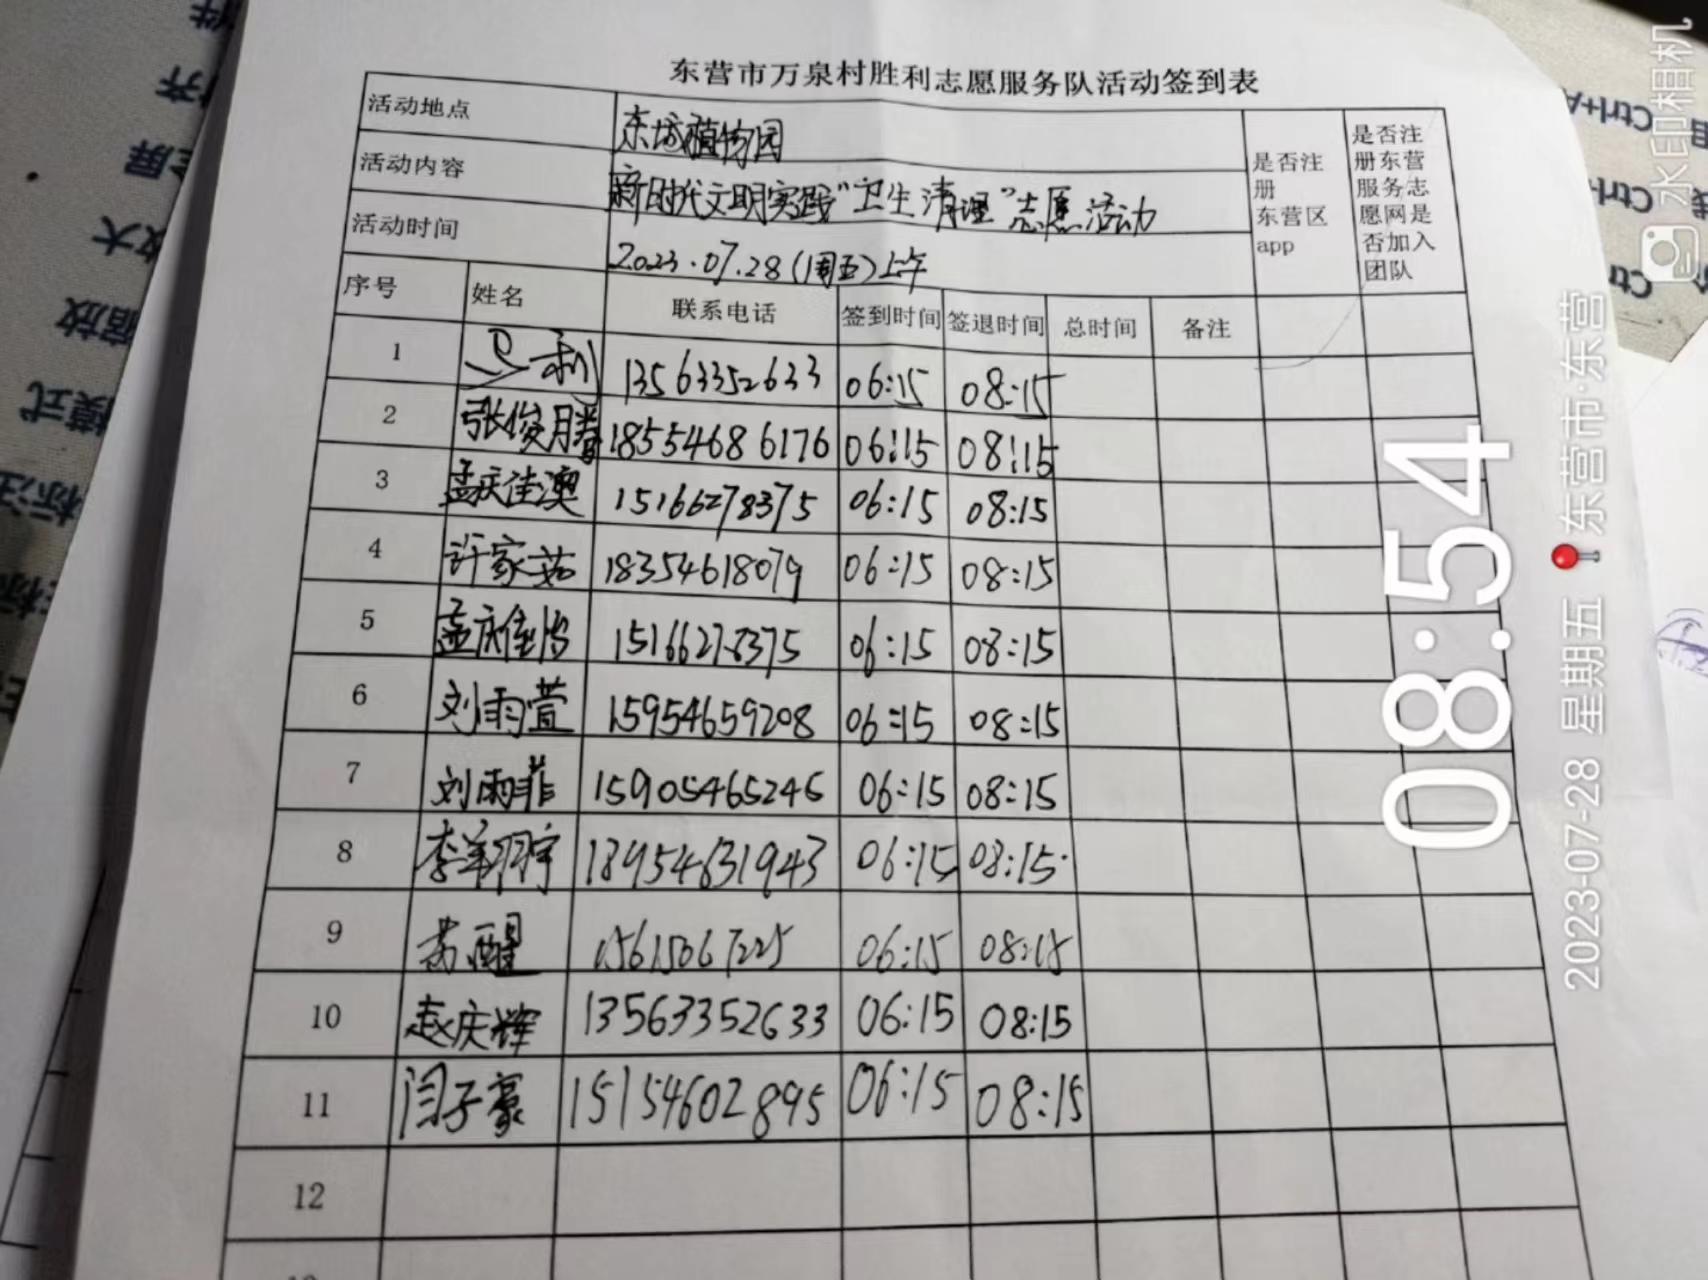 东营市万泉村胜利志愿服务队活动签到表
活动地点 东城植物园
活动内容 新时代文明实践“卫生清理”志愿活动
活动时间 2023.07.28(周五)上午
是否注册东营区app
是否注册东营服务志愿网是否加入团队
序号 姓名 联系电话 签到时间 签退时间 总时间 备注
1 13563352633 06:15 08:15
2 张俊腾 18554686176 06:15 08:15
3 孟庆佳澳 15166278375 06:15 08:15
4 许家茹 18354618079 06:15 08:15
5 孟庆佳怡 15166278375 06:15 08:15
6 刘雨萱 15954659208 06:15 08:15
7 刘雨菲 15905465246 06:15 08:15
8 李翔宇 18954631943 06:15 08:15
9 苏醒 15615067225 06:15 08:15
10 赵庆辉 13563352633 06:15 08:15
11 闫子豪 15154602895 06:15 08:15
12
08:54
2023-07-28 星期五 东营市·东营
水印相机